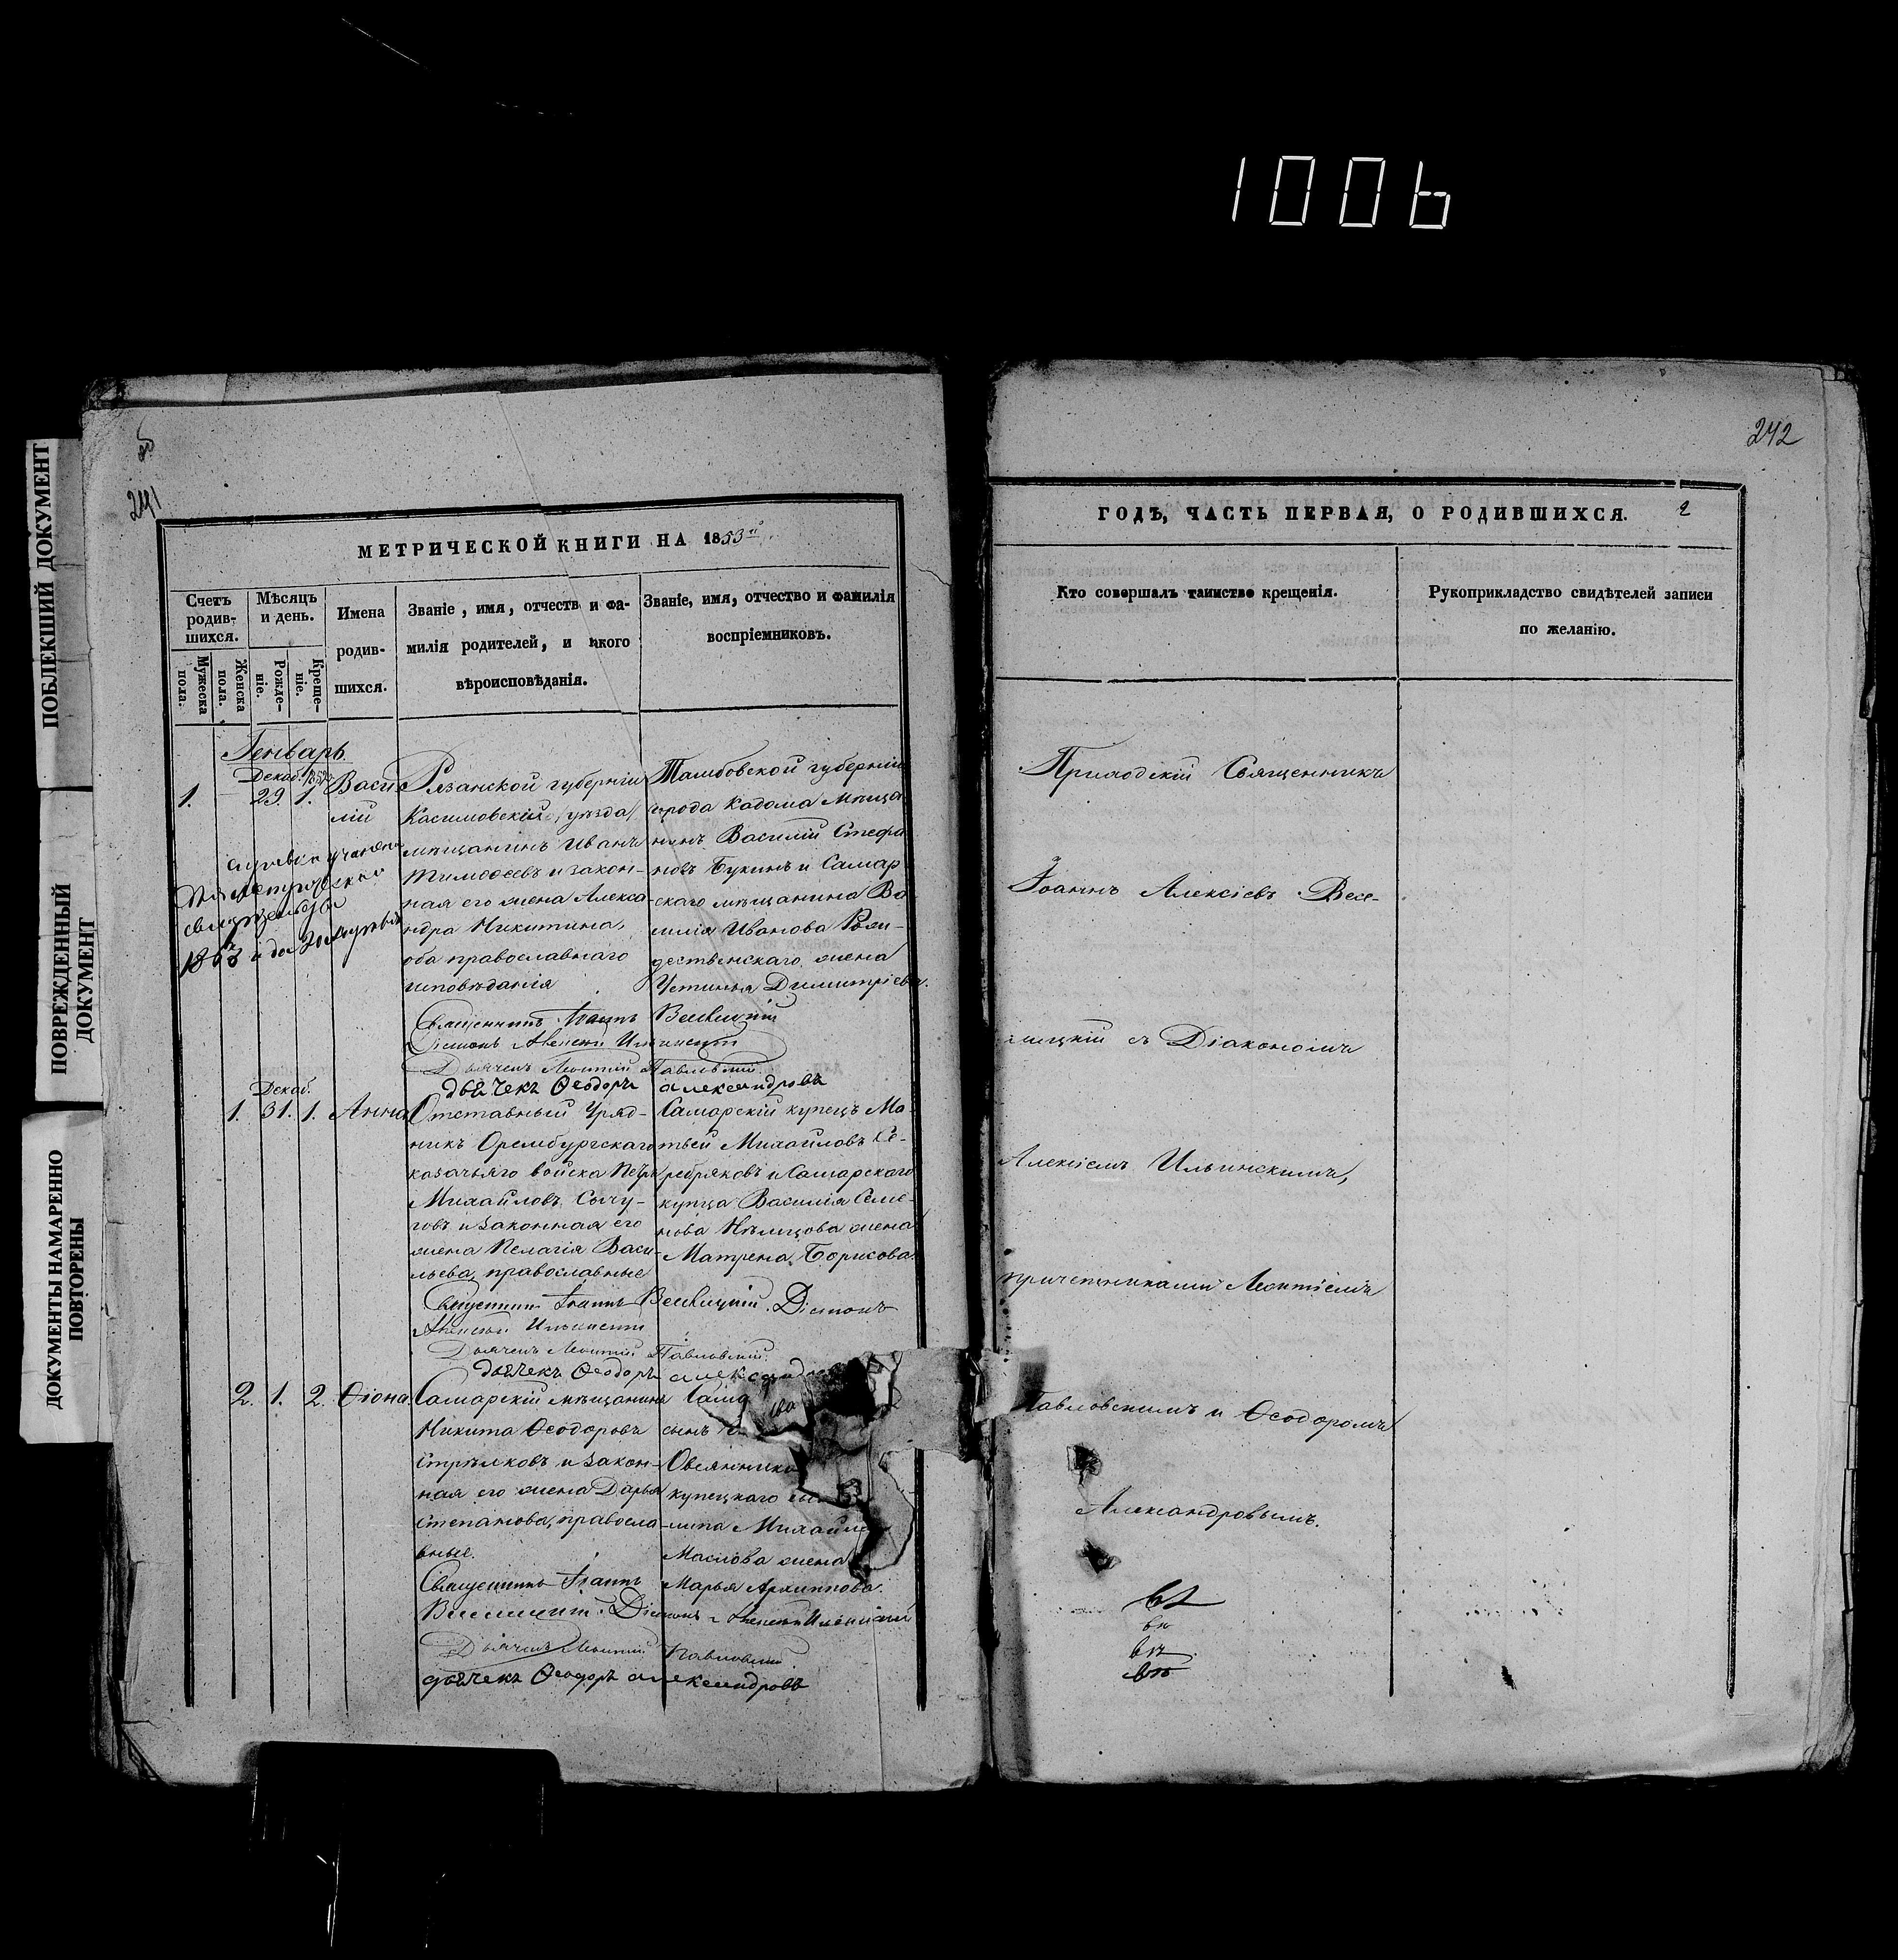 1006
ПОБЛЕКШИЙ ДОКУМЕНТ
ПОВРЕЖДЕННЫЙ
ДОКУМЕНТ
ДОКУМЕНТЫ НАМАРЕННО
ПОВТОРЕНЫ
241
МЕТРИЧЕСКОЙ КНИГИ НА 1853й
Счетъ
родив-
шихся.
Мужеска
пола.
Женска
пола.
Мѣсяцъ
и день.
Рожде-
ніе.
Креще-
ніе.
Имена
родив-
шихся.
Званіе, имя, отчеств и фа-
милія родителей, и какого
вѣроисповѣданія.
Званіе, имя, отчество и фамилія
воспріемниковъ.
Генварь
Декаб. 1852
1. 29. 1. Васи-
лій
Рязанской губерніи
Касимовскій /уѣзда/
мѣщанинъ Иванъ
Тимоѳеевъ и закон-
ная его жена Алекса-
ндра Никитина,
оба православнаго
исповѣданія
Тамбовской губерніи
города Кадома мѣща-
нинъ Василій Стефа-
новъ Букинъ и Самар-
скаго мѣщанина Ва-
силія Иванова Рож-
дественскаго жена
Устинья Димитріева.
справка учинена
для метрическаго
свидѣтельства
1863 года
Священникъ Іоаннъ Веселицкій
Діаконъ Алексей Ильинскій
Дьячекъ Леонтій Павловскій.
дьячекъ Ѳеодоръ александровъ
Декаб.
1. 31. 1. Анна
Отставный Уряд-
никъ Оренбургскаго
казачьяго войска Петръ
Михайловъ Сычу-
говъ и законная его
жена Пелагія Васи-
льева, православные
Самарскій купецъ Ма-
твей Михайловъ Се-
ребряковъ и Самарскаго
купца Василія Семе-
нова Нѣмцова жена
Матрена Борисова.
Священникъ Іоаннъ Веселицкій. Діаконъ
Алексей Ильинскій
Дьячекъ Леонтій Павловскій.
дьячекъ Ѳеодоръ александ
2. 1. 2. Ѳіона.
Самарскій мѣщанинъ
Никита Ѳеодоровъ
Стрѣлковъ и закон-
ная его жена Дарья
Степанова, правосла-
вные.
Сама
сынъ
Овсяннико
купецкаго сы
Михайло
Маслова жена
Марья Архиппова.
Священникъ Іоаннъ
Веселицкій. Діаконъ Алексей Ильинскій
Дьячекъ Леонтій Павловскій
дьячекъ Ѳеодоръ александровъ
242
ГОДЪ, ЧАСТЬ ПЕРВАЯ, О РОДИВШИХСЯ. 2
Кто совершалъ таинство крещенія.
Рукоприкладство свидѣтелей записи
по желанію.
Приходскій Священникъ
Іоаннъ Алексіевъ Весе-
лицкій съ Діакономъ
Алексіемъ Ильинскимъ,
причетниками Леонтіемъ
Павловскимъ и Ѳеодоромъ
Александровымъ.